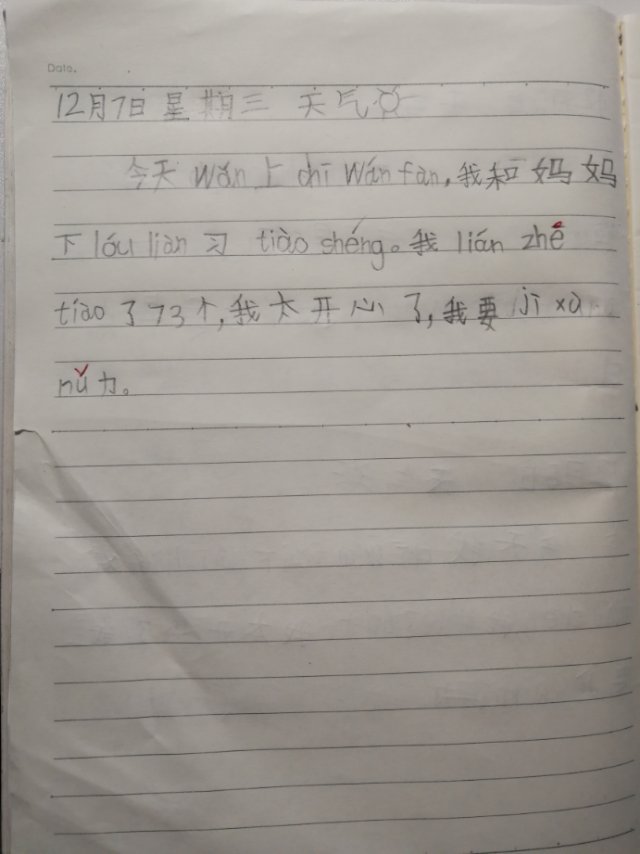 Date.
12月7日 星期三 天气
今天 wǎn上 chī wán fàn,我和妈妈
下 lóu liàn 习 tiào shéng。我 lián zhē
tiào 了 73 个,我太开心了,我要 jì xù
nǔ 力。